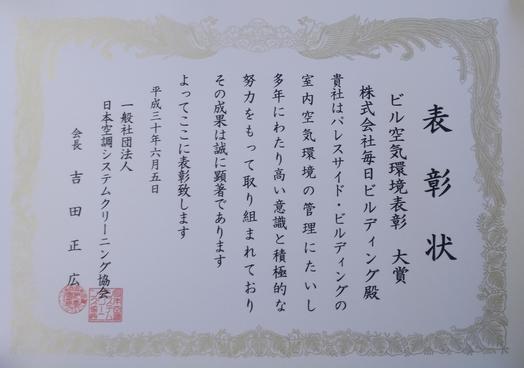 表彰状
ビル空気環境表彰　大賞
株式会社毎日ビルディング殿
貴社はパレスサイド・ビルディングの
室内空気環境の管理にたいし
多年にわたり高い意識と積極的な
努力をもって取り組まれており
その成果は誠に顕著であります
よってここに表彰致します
平成三十年六月五日
一般社団法人
日本空調システムクリーニング協会
会長　吉田正広